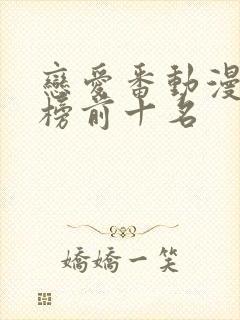 戀愛番動漫
榜前十名
嬌嬌一笑